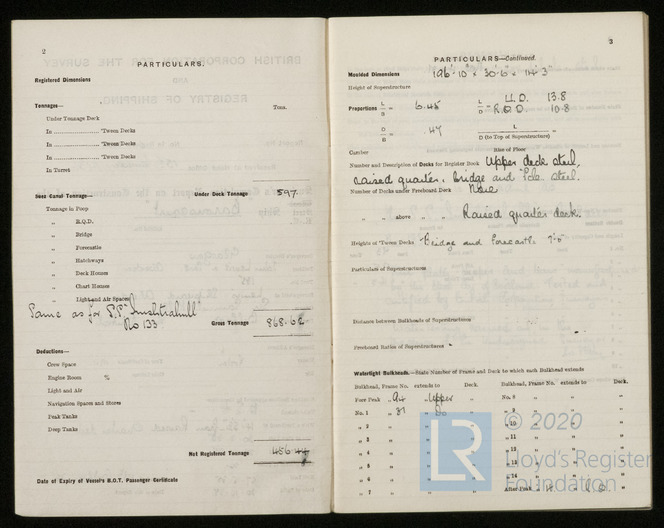 2
PARTICULARS.
Registered Dimensions
Tonnages— Tons.
Under Tonnage Deck
In 'Tween Decks
In 'Tween Decks
In 'Tween Decks
In Turret
Under Deck Tonnage 597.
Suez Canal Tonnage—
Tonnage in Poop
„ R.Q.D.
„ Bridge
„ Forecastle
„ Hatchways
„ Deck Houses
„ Chart Houses
„ Light and Air Spaces
Same as for P.P. "Inishtrahull"
No 133
Gross Tonnage 868.62
Deductions—
Crew Space
Engine Room %
Light and Air
Navigation Spaces and Stores
Peak Tanks
Deep Tanks
Net Registered Tonnage 456.44
Date of Expiry of Vessel's B.O.T. Passenger Certificate
3
PARTICULARS—Continued.
Moulded Dimensions 196'·10" × 30'·6" × 14'3"
Height of Superstructure
Proportions L/B = 6.45 L/D = U.D. 13.8
R.Q.D. 10.8
D/B = .47 L/D (to Top of Superstructure) =
Camber Rise of Floor
Number and Description of Decks for Register Book Upper deck steel,
raised quarter, bridge and Fo'c. steel.
Number of Decks under Freeboard Deck None
„ „ above „ „ Raised quarter deck.
Heights of 'Tween Decks Bridge and Forecastle 7'·5
Particulars of Superstructures
Distance between Bulkheads of Superstructures
Freeboard Ratios of Superstructures
Watertight Bulkheads.—State Number of Frame and Deck to which each Bulkhead extends
Bulkhead, Frame No. extends to Deck. Bulkhead, Frame No. extends to Deck.
Fore Peak „ 94 „ Upper „ No. 8 „ „ „
No. 1 „ 87 „ Do „ „ 9 „ „ „
„ 2 „ „ „ „ 10 „ „ „
„ 3 „ „ „ „ 11 „ „ „
„ 4 „ „ „ „ 12 „ „ „
„ 5 „ „ „ „ 13 „ „ „
„ 6 „ „ „ „ 14 „ „ „
„ 7 „ „ „ After Peak
LR
© 2020
Lloyd's Register
Foundation